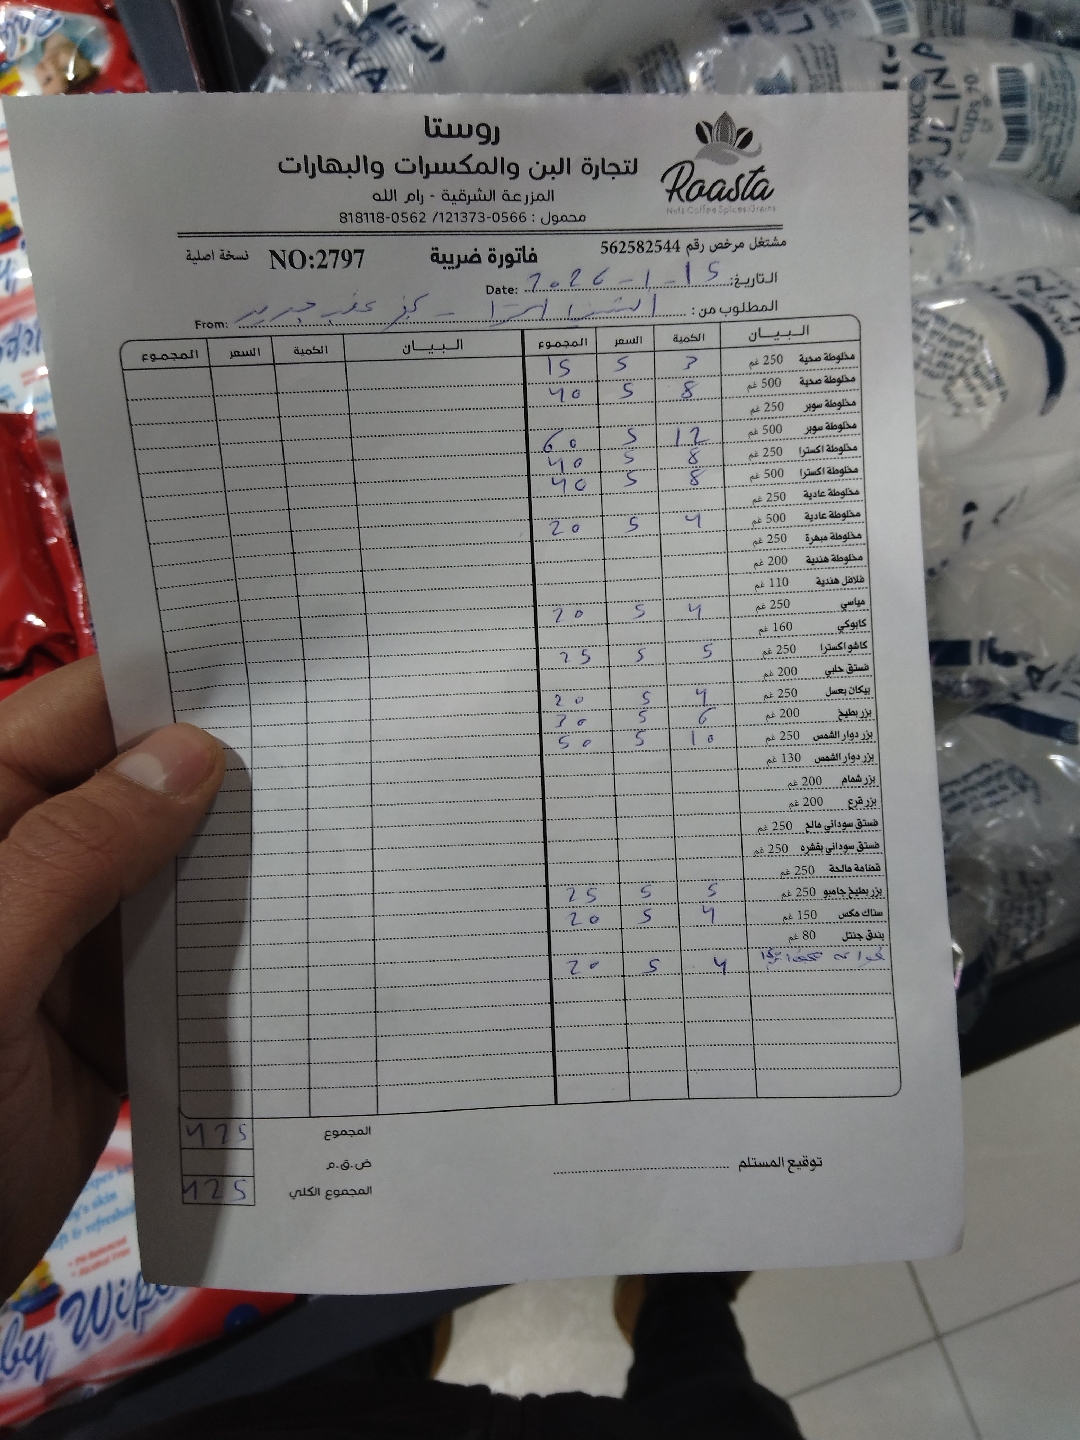 روستا
Roasta
Nuts Coffee Spices Grains
لتجارة البن والمكسرات والبهارات
المزرعة الشرقية - رام الله
محمول : 0566-121373/ 0562-818118
مشتغل مرخص رقم 562582544
فاتورة ضريبة
NO:2797
نسخة اصلية
التاريخ: 15-1-2026 Date:
المطلوب من: From:
البيان الكمية السعر المجموع البيان الكمية السعر المجموع
مخلوطة صحية 250 غم 3 5 15
مخلوطة صحية 500 غم 8 5 40
مخلوطة سوبر 250 غم
مخلوطة سوبر 500 غم 12 5 60
مخلوطة اكسترا 250 غم 8 5 40
مخلوطة اكسترا 500 غم 8 5 40
مخلوطة عادية 250 غم
مخلوطة عادية 500 غم 4 5 20
مخلوطة مبهرة 250 غم
مخلوطة هندية 200 غم
فلافل هندية 110 غم
مياسي 250 غم 4 5 20
كابوكي 160 غم
كاشو اكسترا 250 غم 5 5 25
فستق حلبي 200 غم
بيكان بعسل 250 غم 4 5 20
بزر بطيخ 200 غم 6 5 30
بزر دوار الشمس 250 غم 10 5 50
بزر دوار الشمس 130 غم
بزر شمام 200 غم
بزر قرع 200 غم
فستق سوداني مالح 250 غم
فستق سوداني بقشره 250 غم
قضامة مالحة 250 غم
بزر بطيخ جامبو 250 غم 5 5 25
سناك مكس 150 غم 4 5 20
بندق جنتل 80 غم
4 5 20
المجموع 425
ض.ق.م
المجموع الكلي 425
توقيع المستلم
by Wipe